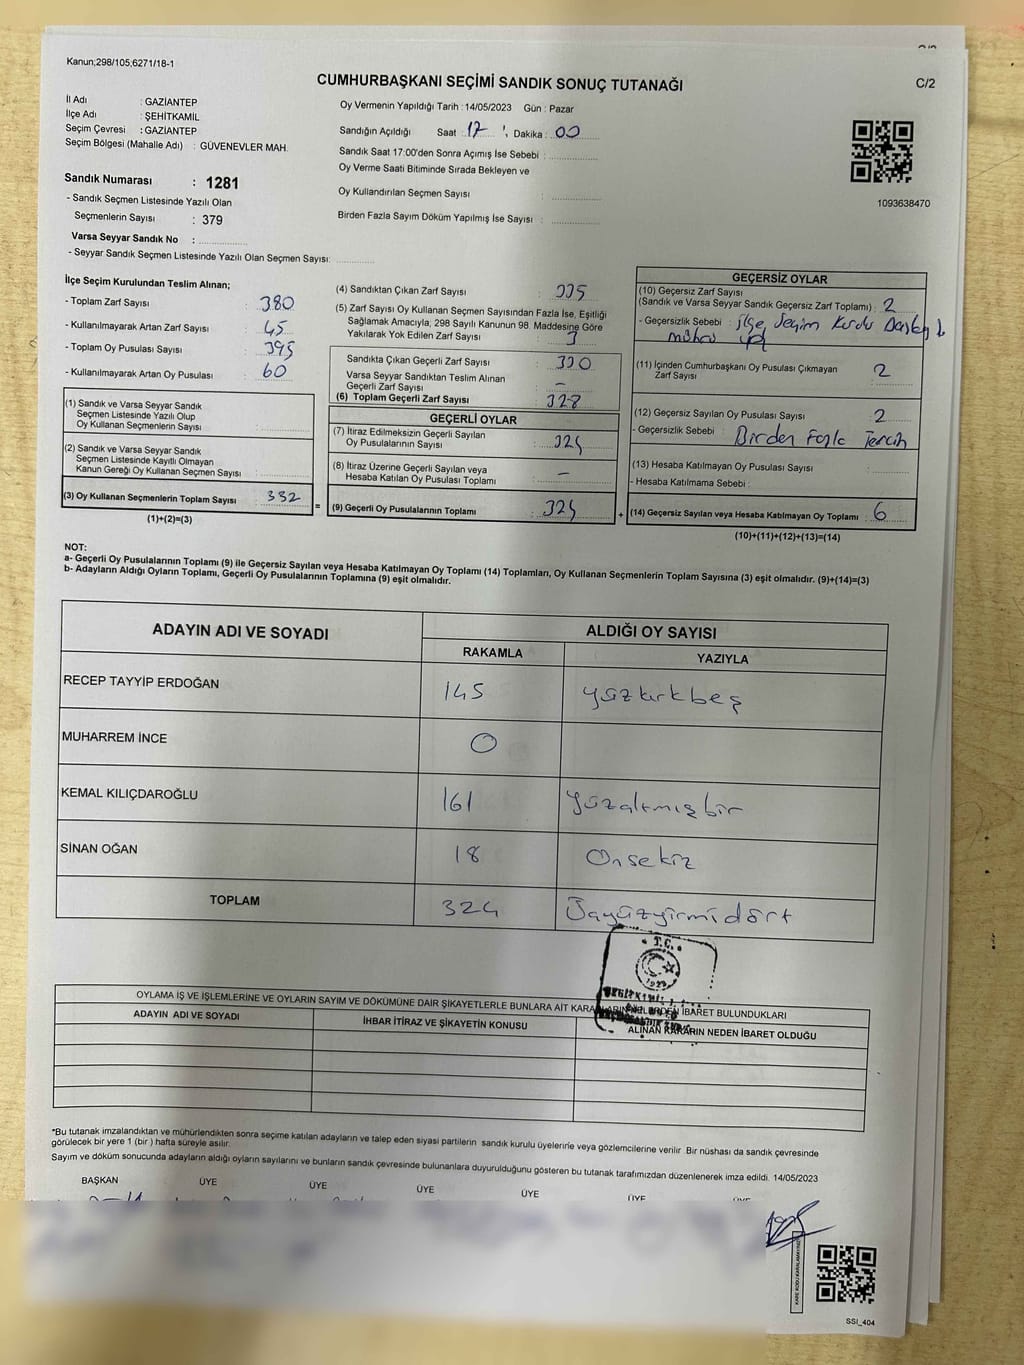 Kanun;298/105;6271/18-1
CUMHURBAŞKANI SEÇİMİ SANDIK SONUÇ TUTANAĞI
C/2
İl Adı : GAZİANTEP
İlçe Adı : ŞEHİTKAMİL
Seçim Çevresi : GAZİANTEP
Seçim Bölgesi (Mahalle Adı) : GÜVENEVLER MAH.
Sandık Numarası : 1281
- Sandık Seçmen Listesinde Yazılı Olan
Seçmenlerin Sayısı : 379
Varsa Seyyar Sandık No :
- Seyyar Sandık Seçmen Listesinde Yazılı Olan Seçmen Sayısı:
Oy Vermenin Yapıldığı Tarih : 14/05/2023 Gün : Pazar
Sandığın Açıldığı Saat : 17 , Dakika : 00
Sandık Saat 17:00'den Sonra Açımış İse Sebebi :
Oy Verme Saati Bitiminde Sırada Bekleyen ve
Oy Kullandırılan Seçmen Sayısı :
Birden Fazla Sayım Döküm Yapılmış İse Sayısı :
1093638470
İlçe Seçim Kurulundan Teslim Alınan;
- Toplam Zarf Sayısı : 380
- Kullanılmayarak Artan Zarf Sayısı : 45
- Toplam Oy Pusulası Sayısı : 395
- Kullanılmayarak Artan Oy Pusulası : 60
(1) Sandık ve Varsa Seyyar Sandık
Seçmen Listesinde Yazılı Olup
Oy Kullanan Seçmenlerin Sayısı :
(2) Sandık ve Varsa Seyyar Sandık
Seçmen Listesinde Kayıtlı Olmayan
Kanun Gereği Oy Kullanan Seçmen Sayısı :
(3) Oy Kullanan Seçmenlerin Toplam Sayısı : 332
(1)+(2)=(3)
(4) Sandıktan Çıkan Zarf Sayısı : 335
(5) Zarf Sayısı Oy Kullanan Seçmen Sayısından Fazla İse, Eşitliği
Sağlamak Amacıyla; 298 Sayılı Kanunun 98. Maddesine Göre
Yakılarak Yok Edilen Zarf Sayısı : 3
Sandıkta Çıkan Geçerli Zarf Sayısı : 330
Varsa Seyyar Sandıktan Teslim Alınan
Geçerli Zarf Sayısı : –
(6) Toplam Geçerli Zarf Sayısı : 328
GEÇERLİ OYLAR
(7) İtiraz Edilmeksizin Geçerli Sayılan
Oy Pusulalarının Sayısı : 324
(8) İtiraz Üzerine Geçerli Sayılan veya
Hesaba Katılan Oy Pusulası Toplamı : –
= (9) Geçerli Oy Pusulalarının Toplamı : 324
GEÇERSİZ OYLAR
(10) Geçersiz Zarf Sayısı
(Sandık ve Varsa Seyyar Sandık Geçersiz Zarf Toplamı) : 2
- Geçersizlik Sebebi : ilçe Seçim Kurulu
mührü yok
(11) İçinden Cumhurbaşkanı Oy Pusulası Çıkmayan
Zarf Sayısı : 2
(12) Geçersiz Sayılan Oy Pusulası Sayısı : 2
- Geçersizlik Sebebi : Birden Fazla Tercih
(13) Hesaba Katılmayan Oy Pusulası Sayısı :
- Hesaba Katılmama Sebebi :
+ (14) Geçersiz Sayılan veya Hesaba Katılmayan Oy Toplamı : 6
(10)+(11)+(12)+(13)=(14)
NOT:
a- Geçerli Oy Pusulalarının Toplamı (9) ile Geçersiz Sayılan veya Hesaba Katılmayan Oy Toplamı (14) Toplamları, Oy Kullanan Seçmenlerin Toplam Sayısına (3) eşit olmalıdır. (9)+(14)=(3)
b- Adayların Aldığı Oyların Toplamı, Geçerli Oy Pusulalarının Toplamına (9) eşit olmalıdır.
ADAYIN ADI VE SOYADI ALDIĞI OY SAYISI
RAKAMLA YAZIYLA
RECEP TAYYİP ERDOĞAN 145 yüzkırkbeş
MUHARREM İNCE 0
KEMAL KILIÇDAROĞLU 161 yüzaltmışbir
SİNAN OĞAN 18 Onsekiz
TOPLAM 324 Üçyüzyirmidört
T.C.
1923
OYLAMA İŞ VE İŞLEMLERİNE VE OYLARIN SAYIM VE DÖKÜMÜNE DAİR ŞİKAYETLERLE BUNLARA AİT İBARET BULUNDUKLARI
ADAYIN ADI VE SOYADI İHBAR İTİRAZ VE ŞİKAYETİN KONUSU ALINAN KARARIN NEDEN İBARET OLDUĞU
*Bu tutanak imzalandıktan ve mühürlendikten sonra seçime katılan adayların ve talep eden siyasi partilerin sandık kurulu üyelerine veya gözlemcilerine verilir. Bir nüshası da sandık çevresinde
görülecek bir yere 1 (bir) hafta süreyle asılır.
Sayım ve döküm sonucunda adayların aldığı oyların sayılarını ve bunların sandık çevresinde bulunanlara duyurulduğunu gösteren bu tutanak tarafımızdan düzenlenerek imza edildi. 14/05/2023
BAŞKAN ÜYE ÜYE ÜYE ÜYE ÜYE ÜYE
SSI_404